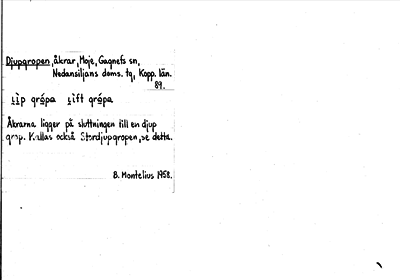 Djupgropen, åkrar, Moje, Gagnefs sn,
Nedansiljans doms. tg, Kopp. län.
89.
grópa grópa
Åkrarna ligger på sluttningen till en djup
grop. Kallas också Stordjupgropen, se detta.
B. Montelius 1958.